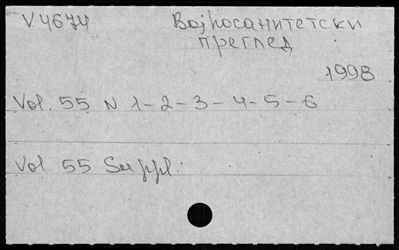 V4674 Војносанитетски
преглед
1998
Vol. 55 N 1-2-3-4-5-6
Vol 55 Suppl.